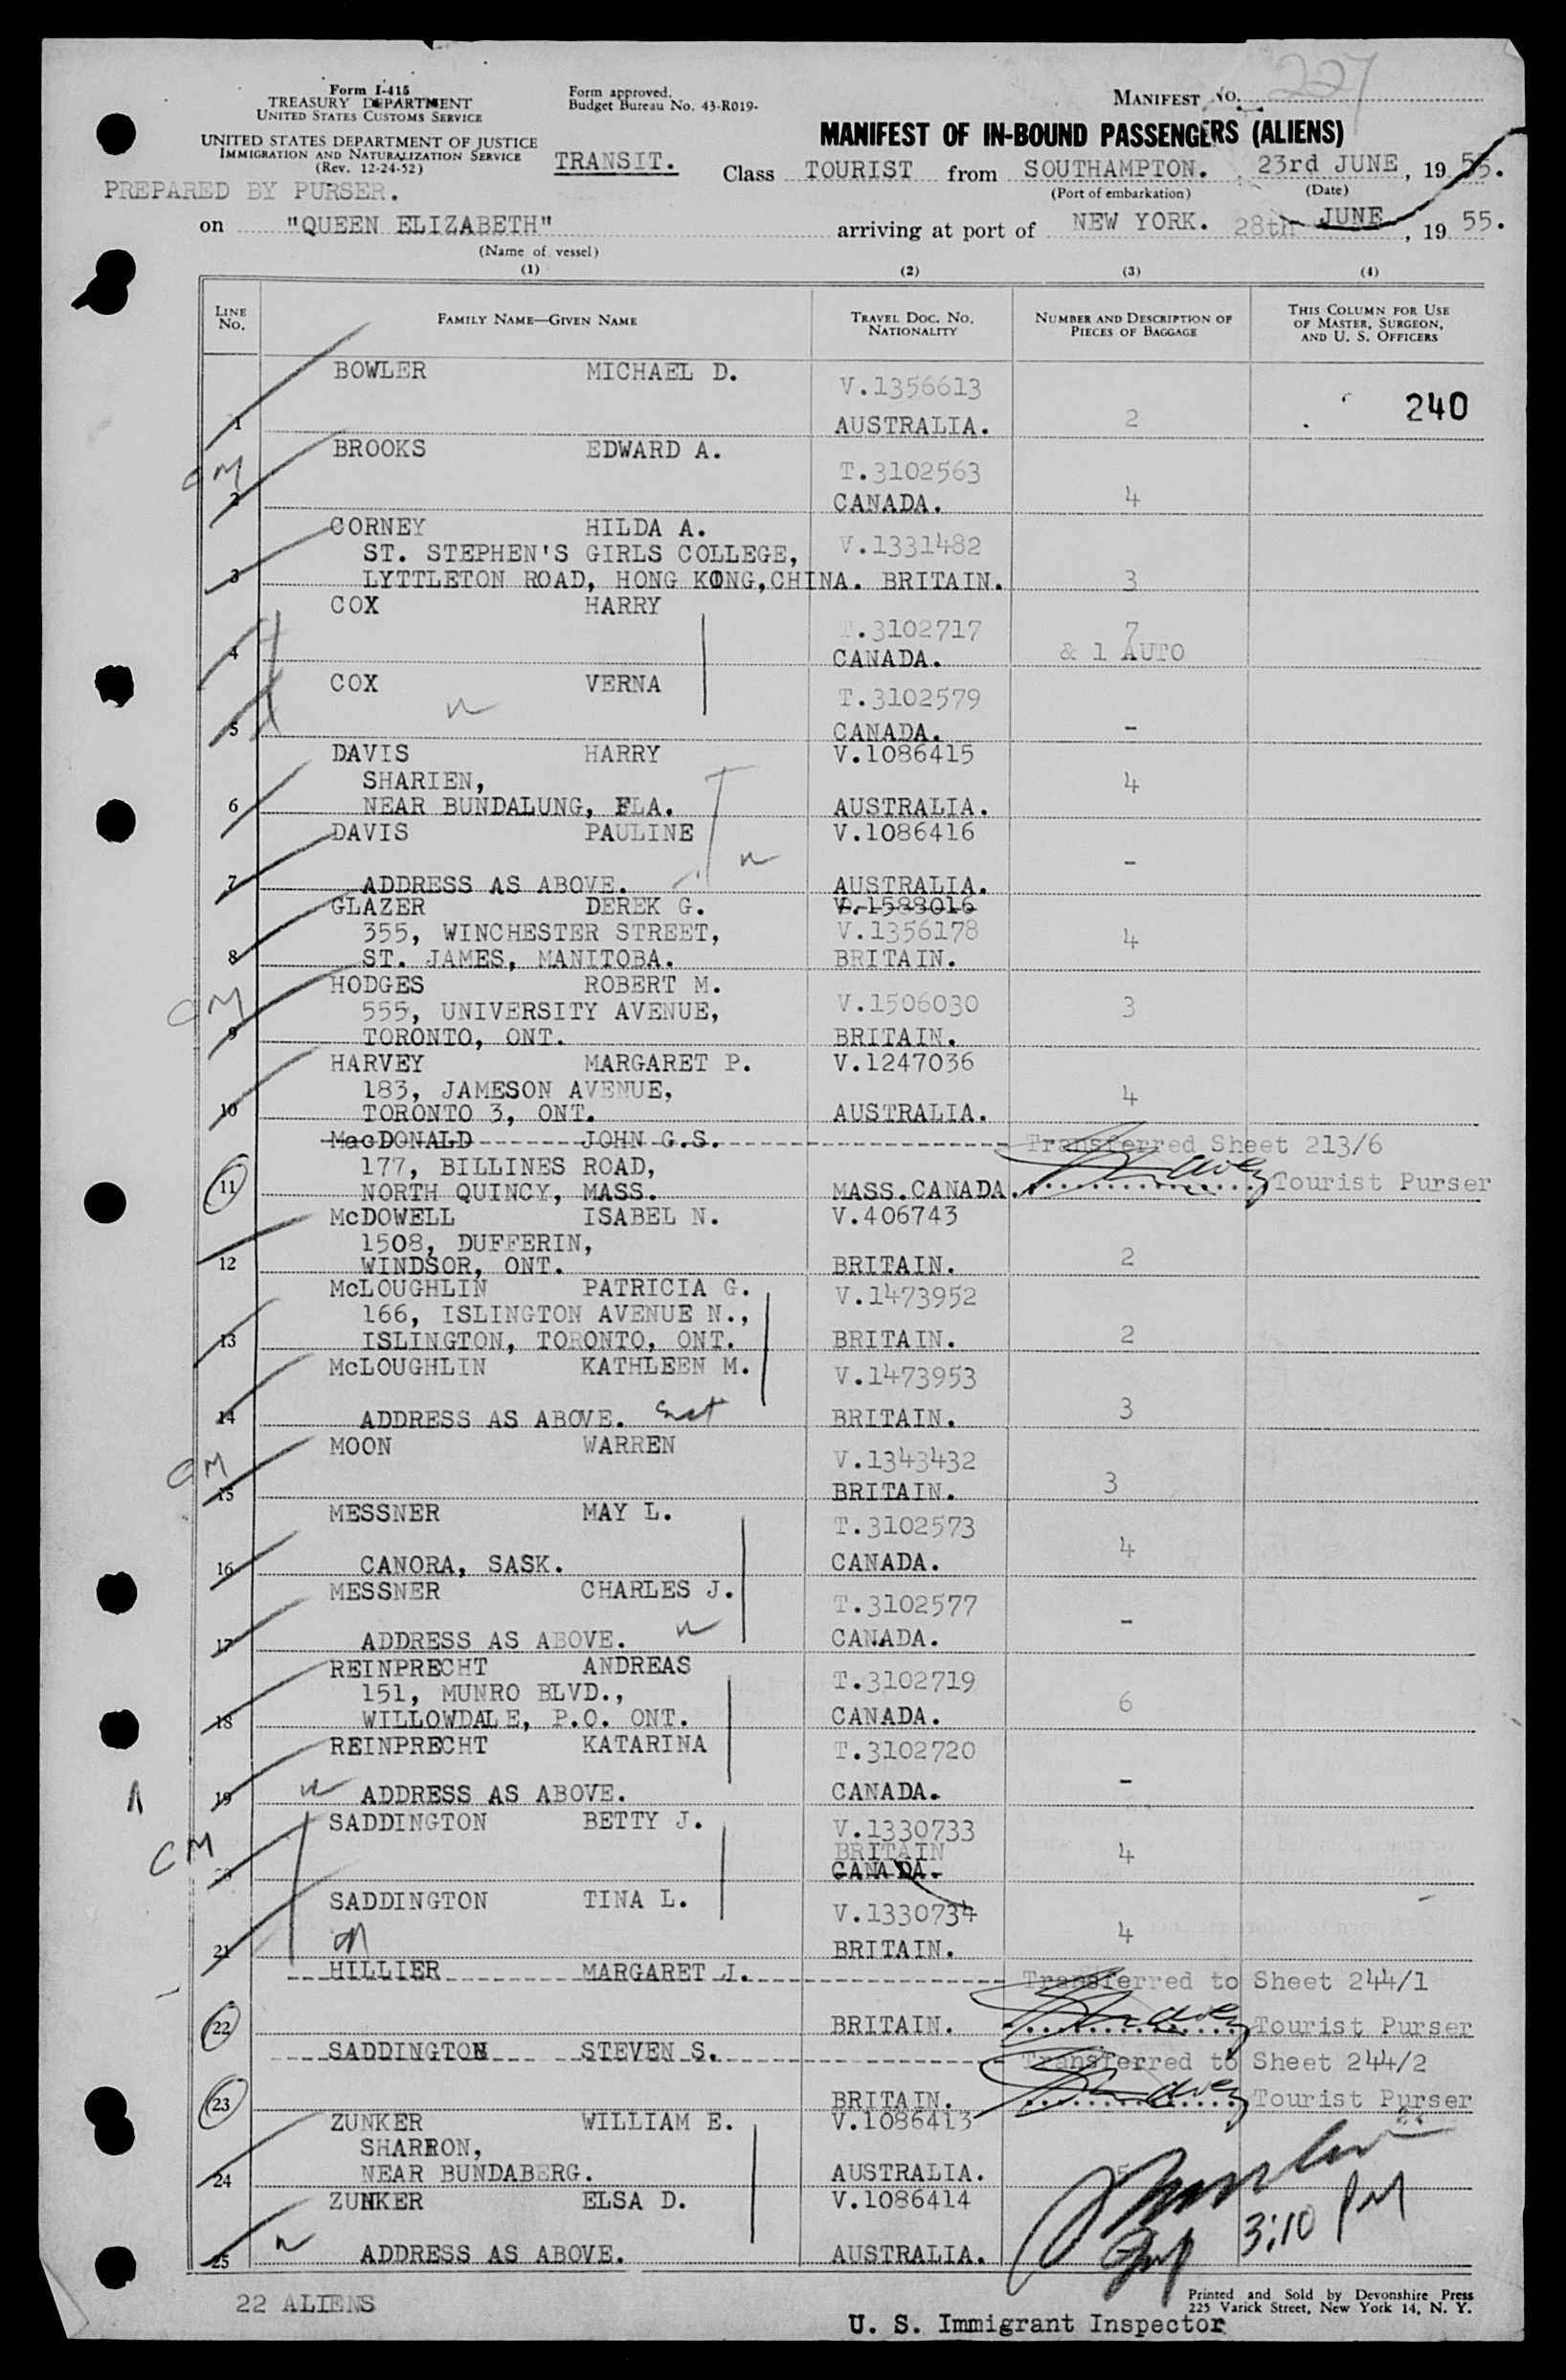 227
Form I-415
TREASURY DEPARTMENT
UNITED STATES CUSTOMS SERVICE
Form approved.
Budget Bureau No. 43-R019-
MANIFEST NO.
UNITED STATES DEPARTMENT OF JUSTICE
IMMIGRATION AND NATURALIZATION SERVICE
(Rev. 12-24-52)
MANIFEST OF IN-BOUND PASSENGERS (ALIENS)
PREPARED BY PURSER.
TRANSIT. Class TOURIST from SOUTHAMPTON. 23rd JUNE, 19 55.
(Port of embarkation) (Date)
on "QUEEN ELIZABETH" arriving at port of NEW YORK. 28th JUNE, 19 55.
(Name of vessel)
(1) (2) (3) (4)
LINE NO. FAMILY NAME—GIVEN NAME TRAVEL DOC. NO. NATIONALITY NUMBER AND DESCRIPTION OF PIECES OF BAGGAGE THIS COLUMN FOR USE OF MASTER, SURGEON, AND U. S. OFFICERS
BOWLER MICHAEL D.
V.1356613
240
1 AUSTRALIA. 2
BROOKS EDWARD A.
CM T.3102563
2 CANADA. 4
CORNEY HILDA A.
ST. STEPHEN'S GIRLS COLLEGE, V.1331482
3 LYTTLETON ROAD, HONG KONG, CHINA. BRITAIN. 3
COX HARRY
T.3102717 7
4 CANADA. & 1 AUTO
COX VERNA
T.3102579
5 CANADA. -
DAVIS HARRY V.1086415
SHARIEN, 4
6 NEAR BUNDALUNG, FLA. AUSTRALIA.
DAVIS PAULINE V.1086416
-
7 ADDRESS AS ABOVE. AUSTRALIA.
GLAZER DEREK G. V.1588016
355, WINCHESTER STREET, V.1356178 4
8 ST. JAMES, MANITOBA. BRITAIN.
HODGES ROBERT M.
CM 555, UNIVERSITY AVENUE, V.1506030 3
9 TORONTO, ONT. BRITAIN.
HARVEY MARGARET P. V.1247036
183, JAMESON AVENUE, 4
10 TORONTO 3, ONT. AUSTRALIA.
MacDONALD JOHN G.S. Transferred Sheet 213/6
177, BILLINES ROAD,
11 NORTH QUINCY, MASS. MASS.CANADA. Tourist Purser
McDOWELL ISABEL N. V.406743
1508, DUFFERIN,
12 WINDSOR, ONT. BRITAIN. 2
McLOUGHLIN PATRICIA G. V.1473952
166, ISLINGTON AVENUE N.,
13 ISLINGTON, TORONTO, ONT. BRITAIN. 2
McLOUGHLIN KATHLEEN M. V.1473953
14 ADDRESS AS ABOVE. BRITAIN. 3
MOON WARREN
CM V.1343432
15 BRITAIN. 3
MESSNER MAY L.
T.3102573 4
16 CANORA, SASK. CANADA.
MESSNER CHARLES J. T.3102577
-
17 ADDRESS AS ABOVE. CANADA.
REINPRECHT ANDREAS T.3102719
151, MUNRO BLVD., 6
18 WILLOWDALE, P.O. ONT. CANADA.
REINPRECHT KATARINA T.3102720
19 ADDRESS AS ABOVE. CANADA. -
SADDINGTON BETTY J. V.1330733
CM BRITAIN 4
CANADA.
SADDINGTON TINA L. V.1330734
4
21 BRITAIN.
HILLIER MARGARET J. Transferred to Sheet 244/1
22 BRITAIN. Tourist Purser
SADDINGTON STEVEN S. Transferred to Sheet 244/2
23 BRITAIN. Tourist Purser
ZUNKER WILLIAM E. V.1086413
SHARRON,
24 NEAR BUNDABERG. AUSTRALIA. 5
ZUNKER ELSA D. V.1086414
3:10 PM
25 ADDRESS AS ABOVE. AUSTRALIA.
22 ALIENS
Printed and Sold by Devonshire Press
225 Varick Street, New York 14, N. Y.
U. S. Immigrant Inspector